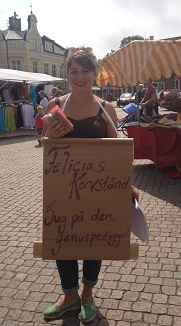 Felicias
Korvstånd
Sug på den
genuspedagoger